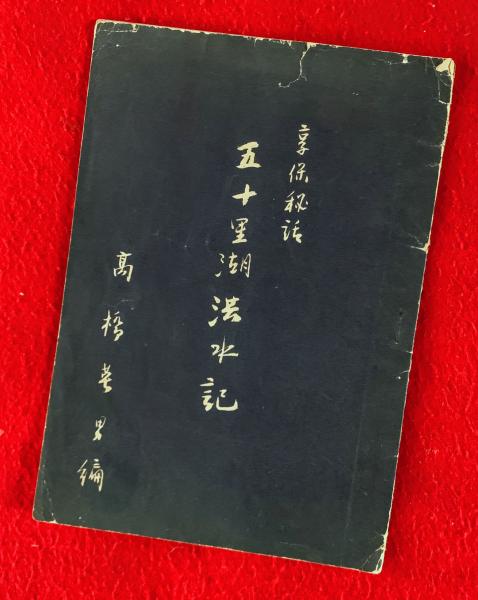 享保秘話
五十里湖洪水記
高橋春男編